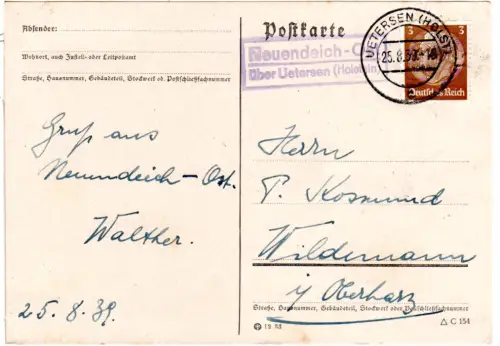 Absender:
Wohnort, auch Zustell- oder Leitpostamt
Straße, Hausnummer, Gebäudeteil, Stockwerk od. Postschließfachnummer
Postkarte
Neuendeich-O
über Uetersen (Holstein)
UETERSEN (HOLST)
25.8.39
3 3
Deutsches Reich
Gruß aus
Neuendeich-Ost.
Walther.
25.8.39.
Herrn
P. Kosmund
Wildemann
i/ Oberharz
Straße, Hausnummer, Gebäudeteil, Stockwerk oder Postschließfachnummer
C 154